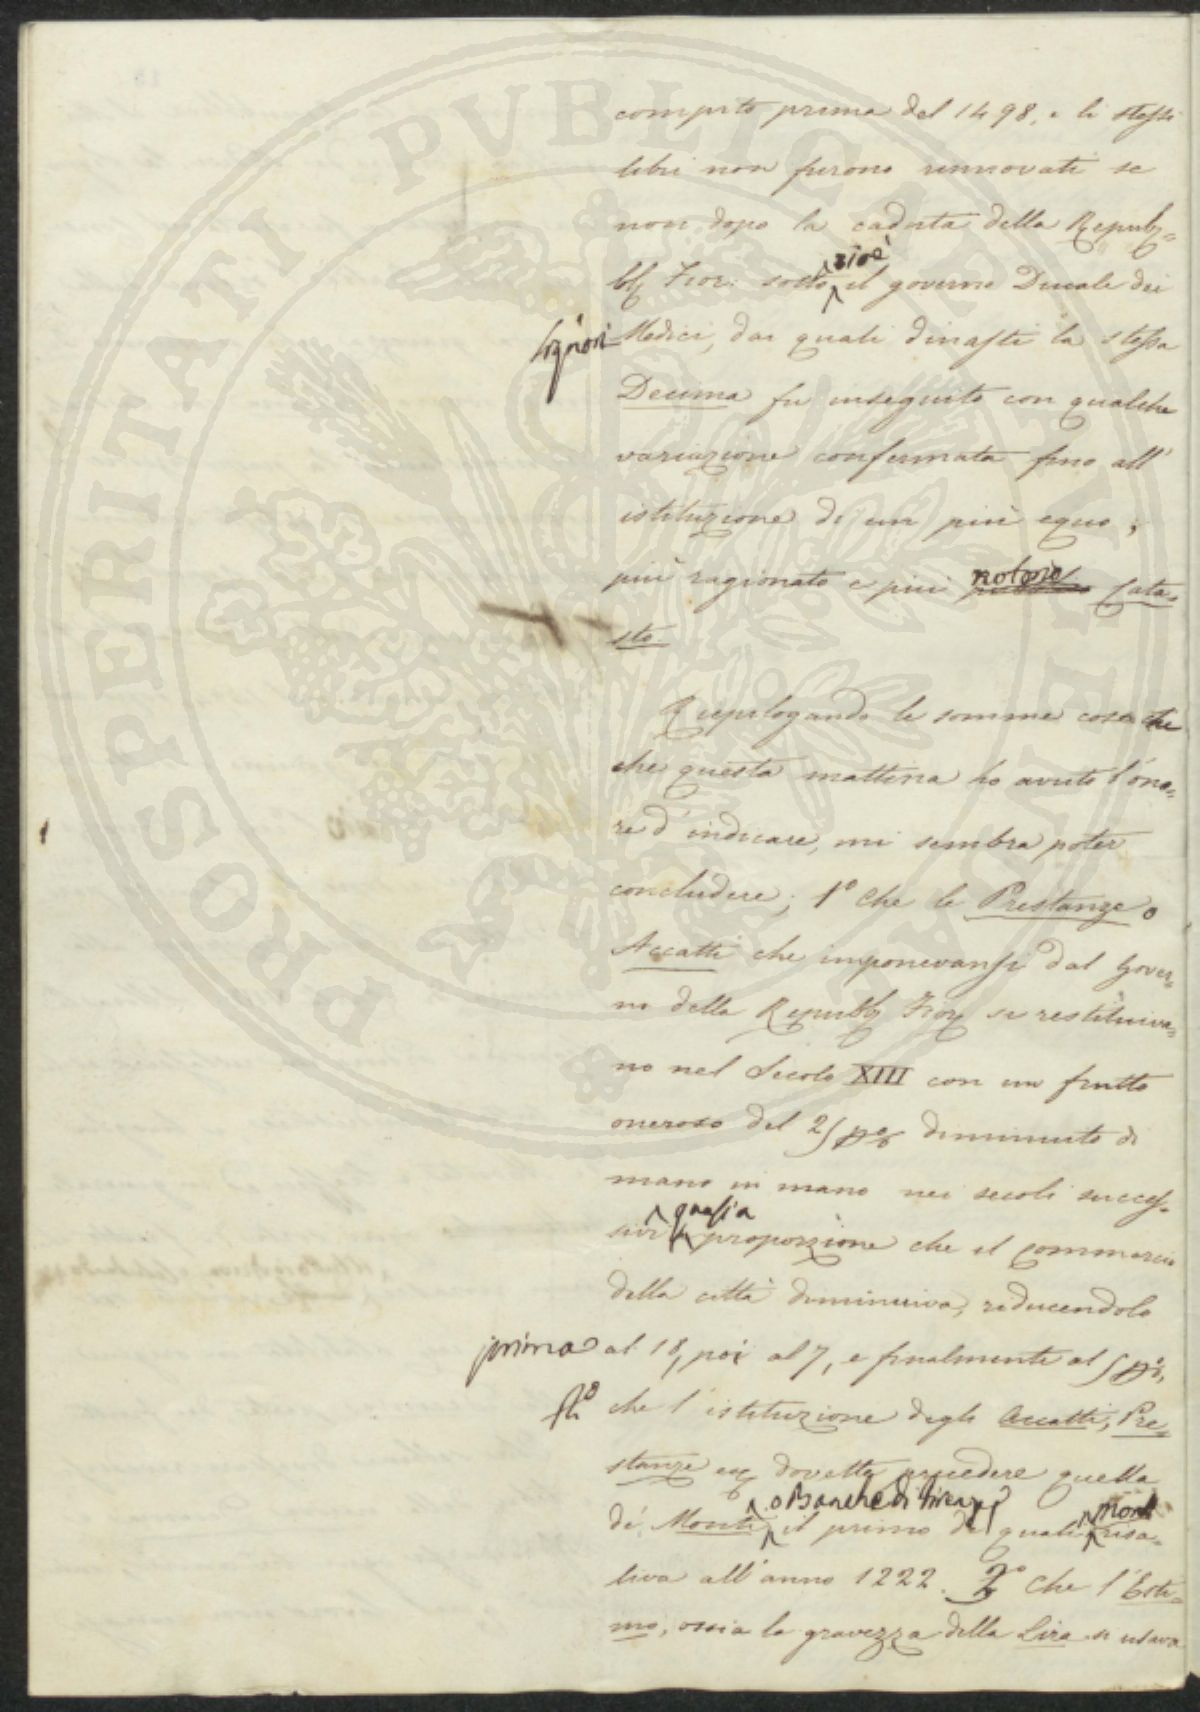 PROSPERITATI PVBLICAE AVGENDAE
compito prima del 1498, e li stessi
libri non furono rinnovati se
non dopo la caduta della Repub=
bl. Fior: sotto cioè il governo Ducale dei
Signori Medici, dai quali dinasti la stessa
Decima fu inseguito con qualche
variazione confermata fino all'
istituzione di un più equo,
più ragionato e più notorio Cata=
sto.
Riepilogando le somme cose che
che questa mattina ho avuto l'ono=
re d'indicare, mi sembra poter
concludere; 1° Che le Prestanze o
Accatti che imponevansi dal Gover=
no della Repubb. Fior. si restituiva=
no nel Secolo XIII con un frutto
oneroso del 25 p% diminuito di
mano in mano nei secoli succes=
sivi quasi a proporzione che il commercio
della città diminuiva, riducendolo
prima al 18, poi al 7, e finalmente al 5 p%,
che l'istituzione degli Accatti, Pre=
stanze ec. dovette precedere quella
dei Monti o Banche di Firenze, il primo de' quali non risa=
liva all'anno 1222. 2° Che l'Esti=
mo, ossia la gravezza della Lira si usava